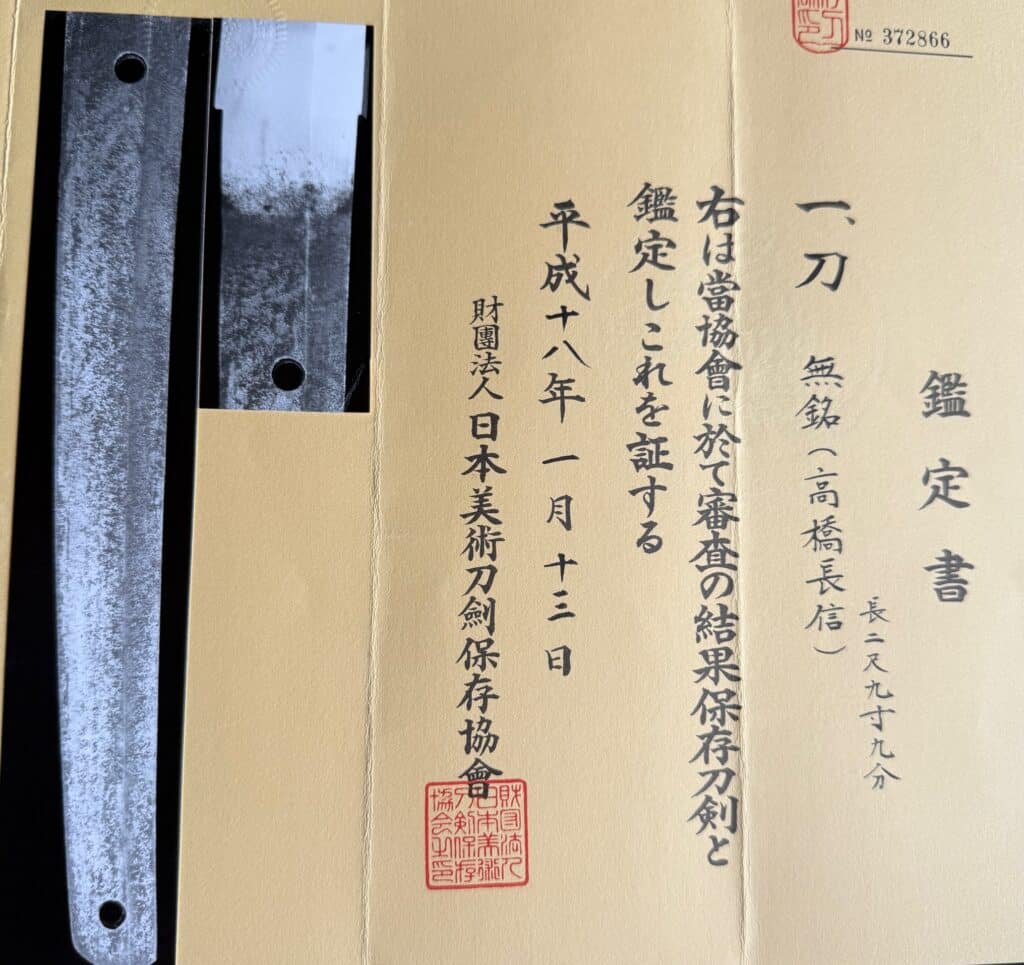 № 372866
鑑定書
一、刀 無銘(高橋長信)
長二尺九寸九分
右は當協會に於て審査の結果保存刀剣と
鑑定しこれを証する
平成十八年一月十三日
財團法人日本美術刀劍保存協會
財団法人
日本美術
刀剣保存
協会之印